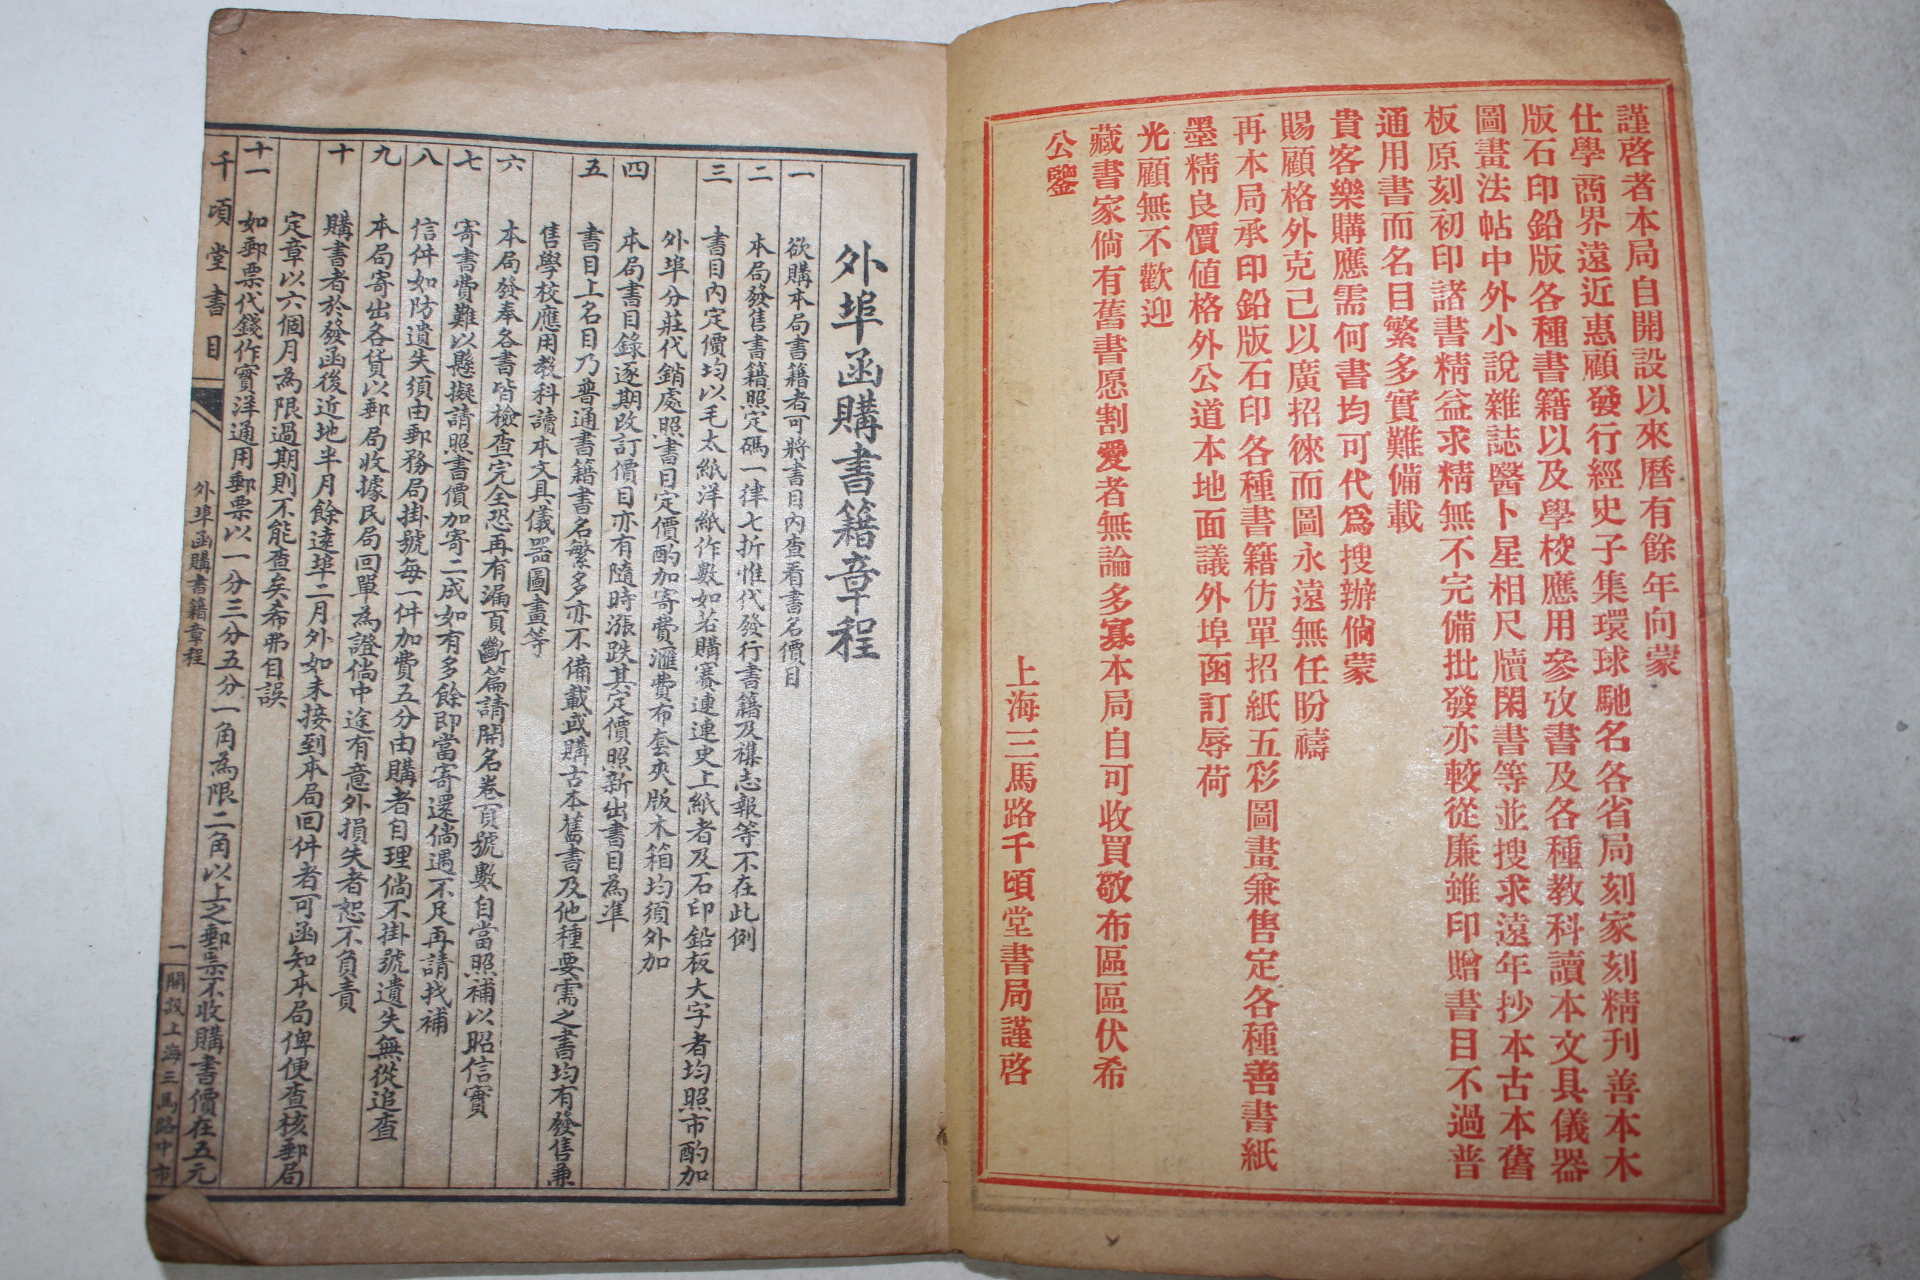 謹啓者本局自開設以來曆有餘年向蒙
仕學商界遠近惠顧發行經史子集環球馳名各省局刻家刻精刊善本木
版石印鉛版各種書籍以及學校應用參攷書及各種教科讀本文具儀器
圖畫法帖中外小說雜誌醫卜星相尺牘閑書等並搜求遠年抄本古本舊
板原刻初印諸書精益求精無不完備批發亦較從廉雖印贈書目不過普
通用書而名目繁多實難備載
貴客樂購應需何書均可代爲搜辦倘蒙
賜顧格外克己以廣招徠而圖永遠無任盼禱
再本局承印鉛版石印各種書籍仿單招紙五彩圖畫兼售定各種善書紙
墨精良價値格外公道本地面議外埠函訂辱荷
光顧無不歡迎
藏書家倘有舊書愿割愛者無論多寡本局自可收買敬布區區伏希
公鑒
上海三馬路千頃堂書局謹啓
外埠函購書籍章程
一 欲購本局書籍者可將書目內查看書名價目
二 本局發售書籍照定碼一律七折惟代發行書籍及襍志報等不在此例
三 書目內定價均以毛太紙洋紙作數如若購賽連連史上紙者及石印鉛板大字者均照市酌加
外埠分莊代銷處照書目定價酌加寄費滙費布套夾版木箱均須外加
四 本局書目錄逐期改訂價目亦有隨時漲跌其定價照新出書目為准
五 書目上名目乃普通書籍書名繁多亦不備載或購古本舊書及他種要需之書均有發售兼
售學校應用教科讀本文具儀器圖畫等
六 本局發奉各書皆檢查完全恐再有漏頁斷篇請開名卷頁號數自當照補以昭信實
七 寄書費難以懸擬請照書價加寄二成如有多餘即當寄還倘遇不足再請找補
八 信件如防遺失須由郵務局掛號每一件加費五分由購者自理倘不掛號遺失無從追查
九 本局寄出各貨以郵局收據民局回單為證倘中途有意外損失者恕不負責
十 購書者於發函後近地半月餘遠埠二月外如未接到本局回件者可函知本局俾便查核郵局
定章以六個月為限過期則不能查矣希弗自誤
十一 如郵票代錢作實洋通用郵票以一分三分五分一角為限二角以上之郵票不收購書價在五元
千頃堂書目 外埠函購書籍章程 一 開設上海三馬路中市